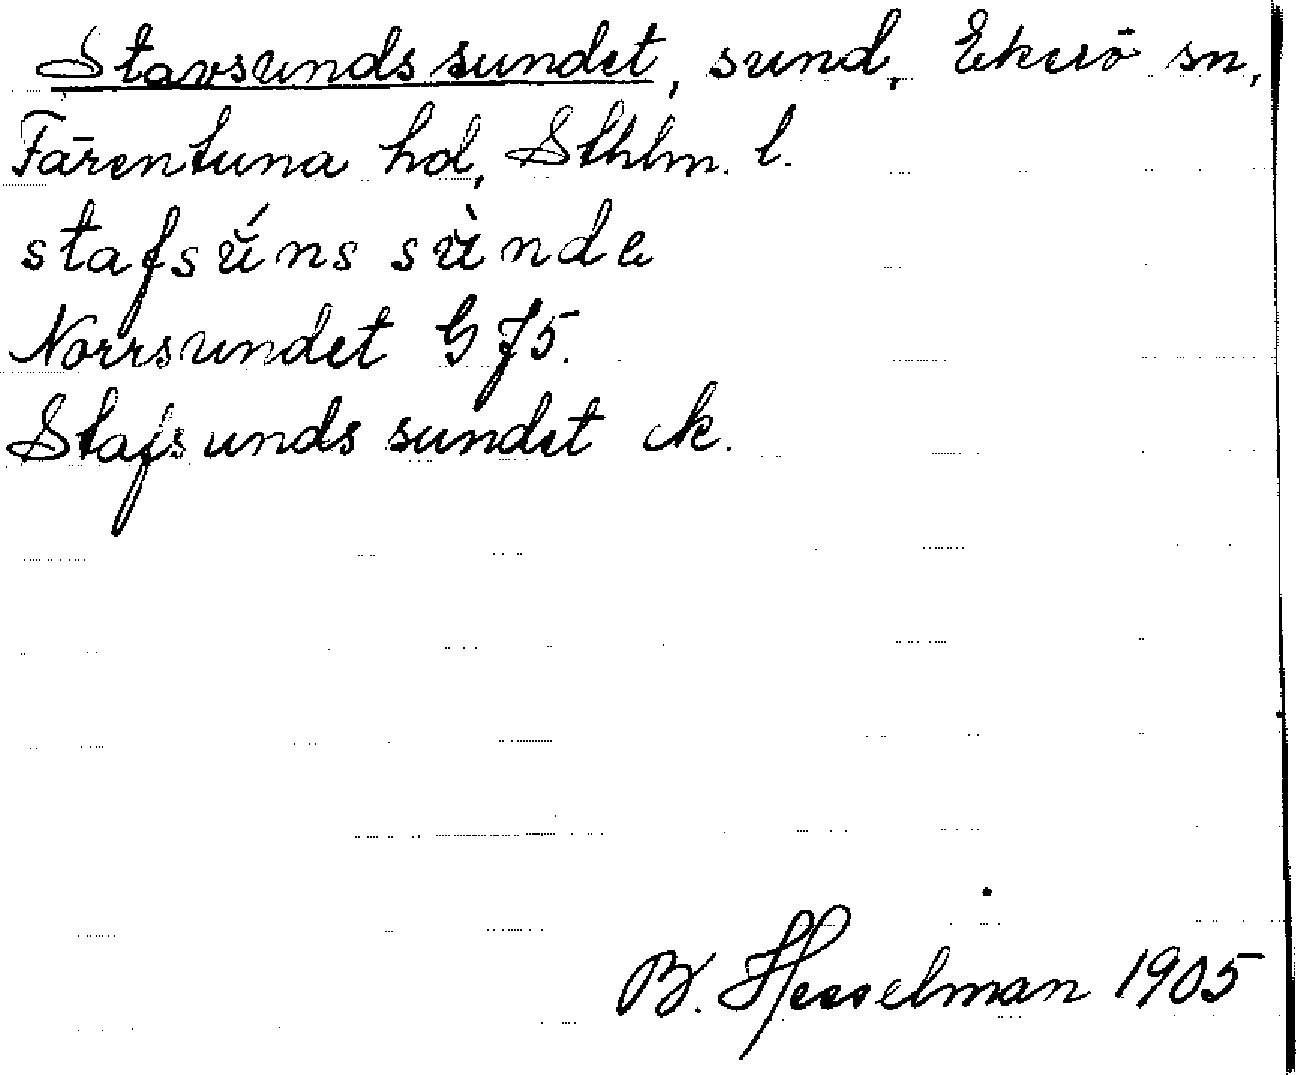 Stavsundssundet, sund, Ekerö sn,
Färentuna hd, Sthlm. l.
stafsúns sùnde
Norrsundet G 75.
Stafsunds sundet ck.
B. Hesselman 1905